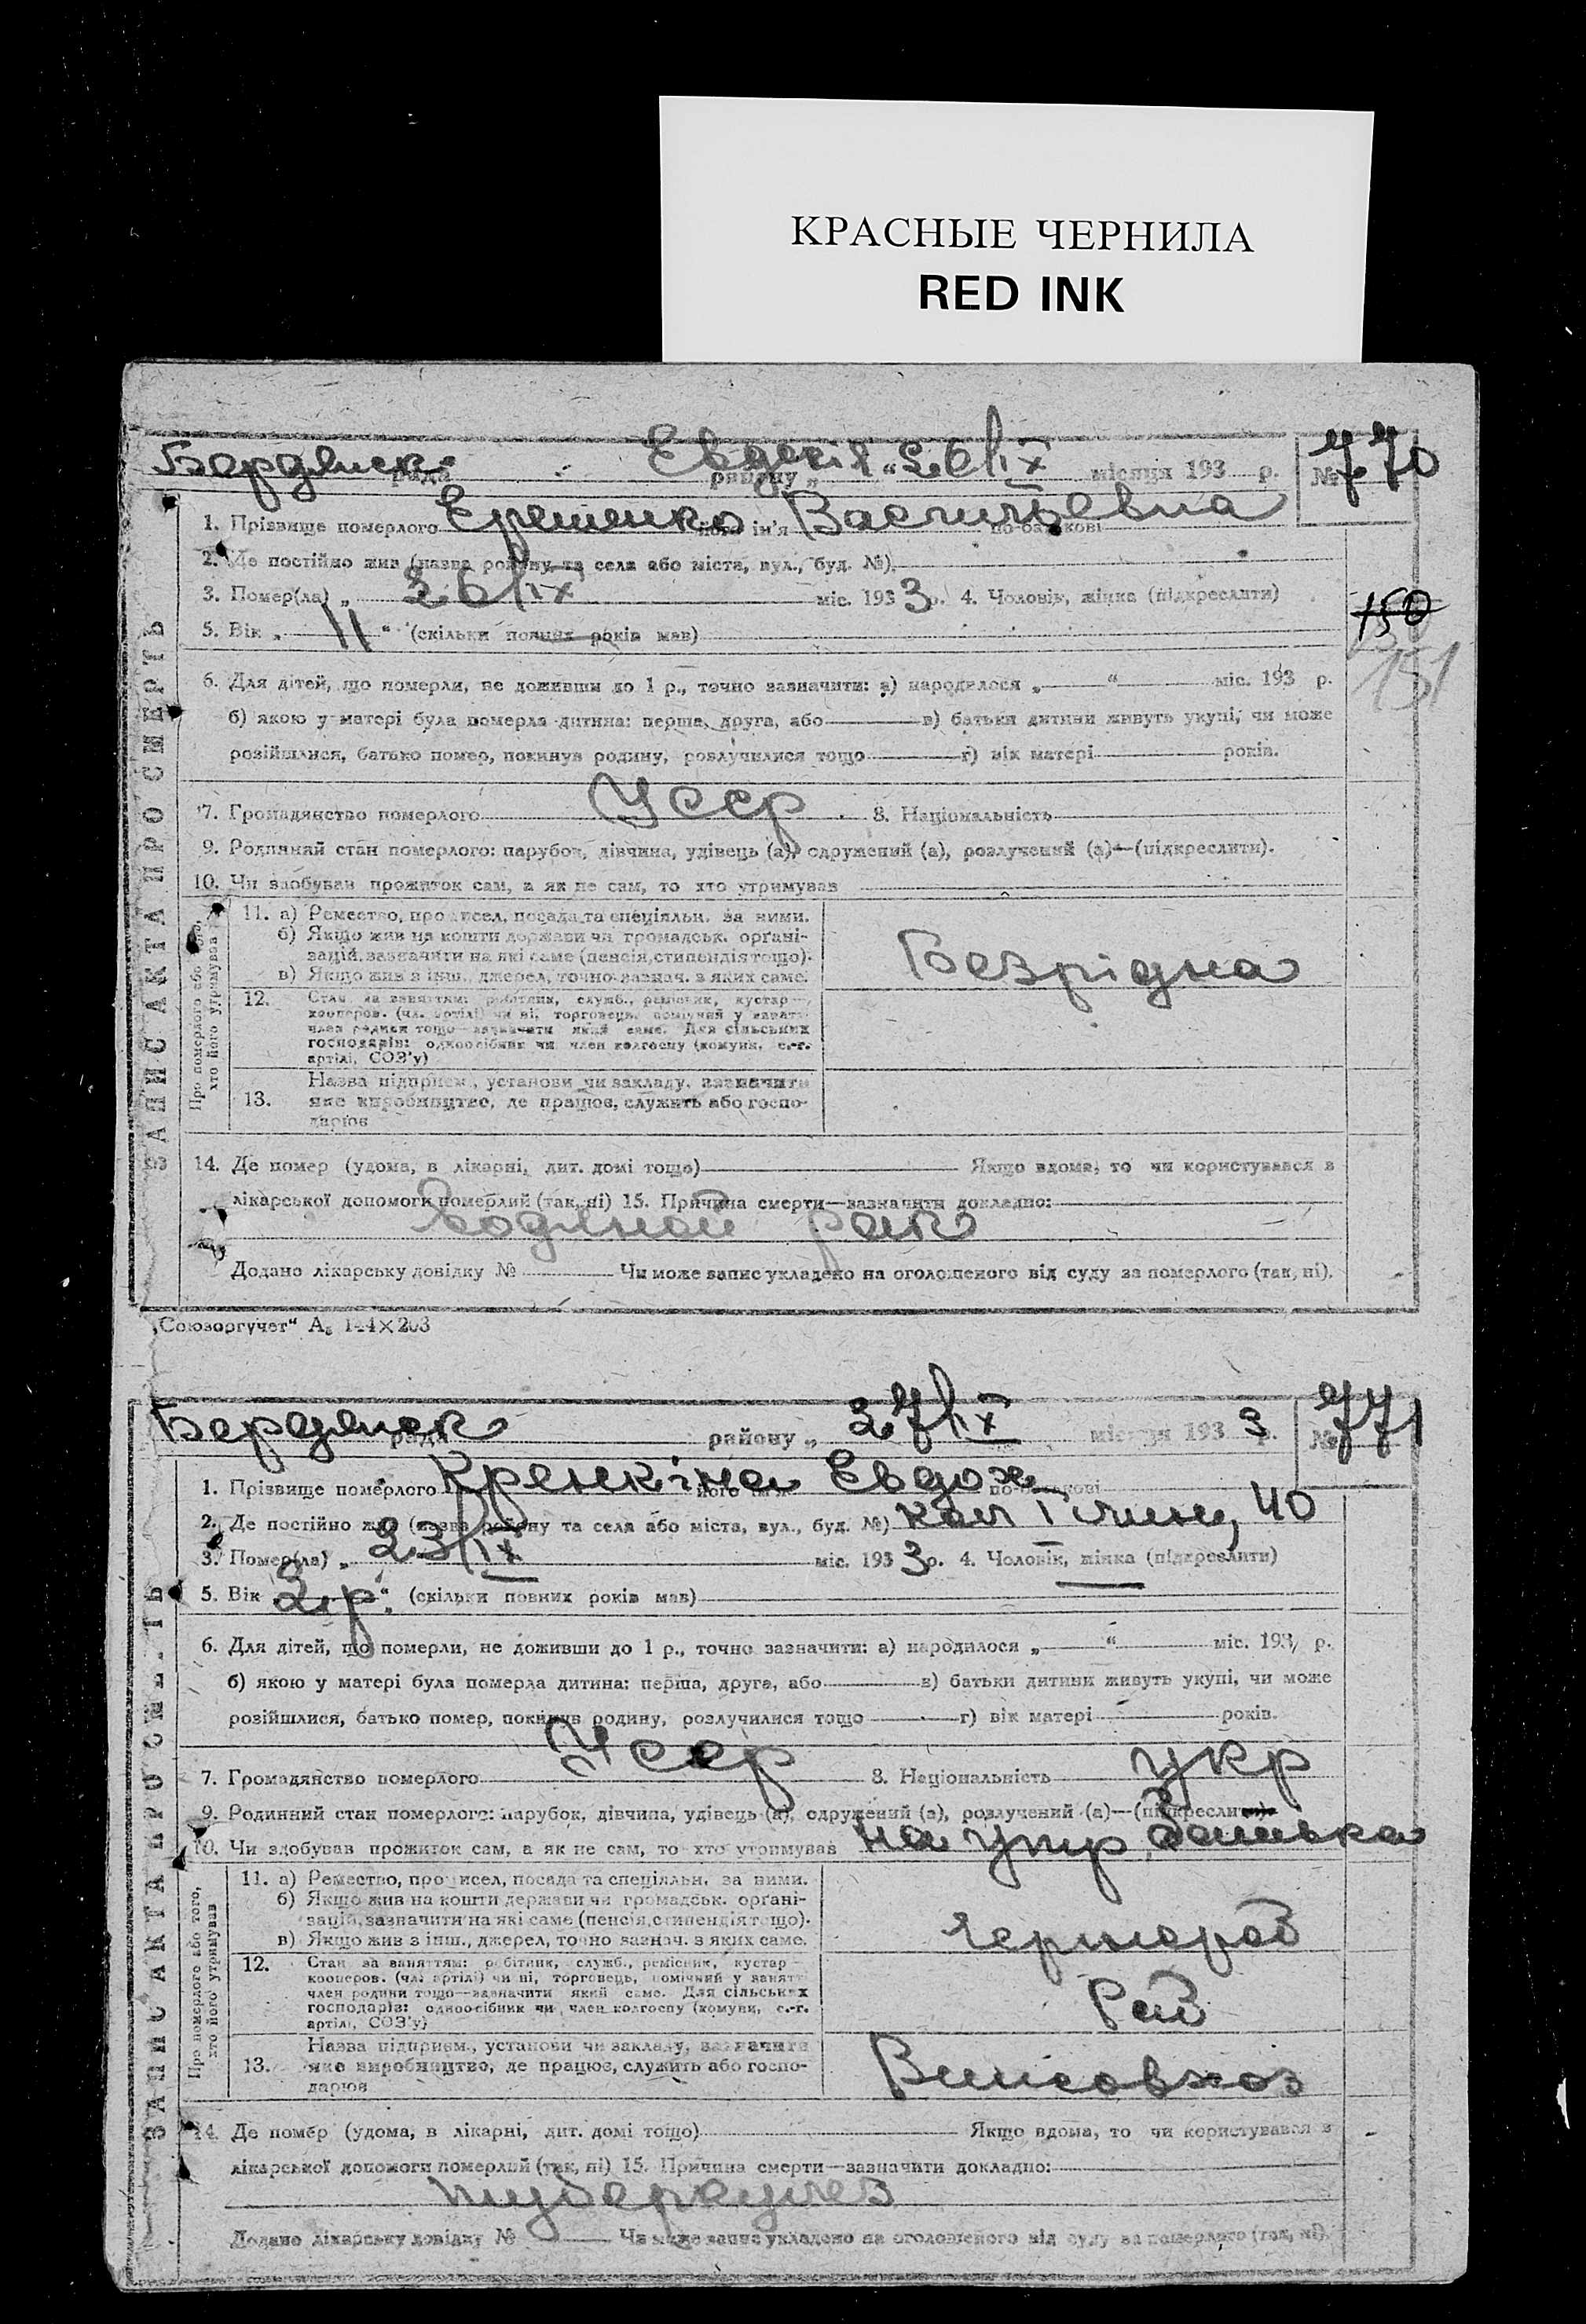 КРАСНЫЕ ЧЕРНИЛА
RED INK
Бердянск рада району „Евдокія “ 26/ІХ місяця 193 р. № 770
1. Прізвище померлого Ерешенко його ім'я Васильевна по-батькові
2. Де постійно жив (назва району та села або міста, вул., буд. №)
3. Помер(ла) „ 26/ІХ міс. 1933 р. 4. Чоловік, жінка (підкреслити)
5. Вік „ 11 “ (скільки повних років мав)
150
151
6. Для дітей, що померли, не доживши до 1 р., точно зазначити: а) народилося „ “ міс. 193 р.
б) якою у матері була померла дитина: перша, друга, або в) батьки дитини живуть укупі, чи може
розійшлися, батько помер, покинув родину, розлучилися тощо г) вік матері років.
7. Громадянство померлого Усср 8. Національність
9. Родинний стан померлого: парубок, дівчина, удівець (а), одружений (а), розлучений (а)—(підкреслити).
10. Чи здобував прожиток сам, а як не сам, то хто утримував
ЗАПИС АКТА ПРО СМЕРТЬ
Про померлого або того, хто його утримував
11. а) Ремество, промисел, посада та спеціяльн. за ними.
б) Якщо жив на кошти держави чи громадськ. органі-
зацій, зазначити на які саме (пенсія, стипендія тощо).
в) Якщо жив з інш., джерел, точно зазнач. з яких саме.
Безрідна
12. Стан за заняттям: робітник, служб., ремісник, кустар—
кооперов. (чл. артілі) чи ні, торговець, помічний у занятт
член родини тощо—зазначити який саме. Для сільських
господарів: одноосібник чи член колгоспу (комуни, с.-г.
артілі, СОЗ'у)
13. Назва підприєм., установи чи закладу, зазначити
яке виробництво, де працює, служить або госпо-
дарює
14. Де помер (удома, в лікарні, дит. домі тощо) Якщо вдома, то чи користувався з
лікарської допомоги померлий (так, ні) 15. Причина смерти—зазначити докладно:
Водяной рак
Додано лікарську довідку № Чи може запис укладено на оголошеного від суду за померлого (так, ні).
„Союзоргучет“ А₅ 144×203
Бердянск рада району „ 27/ІХ місяця 1933 р. № 771
1. Прізвище померлого Кренкіна Евдох його ім'я по-батькові
2. Де постійно жив (назва району та села або міста, вул., буд. №) 40
3. Помер(ла) „ 23/ІХ міс. 1933 р. 4. Чоловік, жінка (підкреслити)
5. Вік „ 2 р “ (скільки повних років мав)
6. Для дітей, що померли, не доживши до 1 р., точно зазначити: а) народилося „ “ міс. 193 р.
б) якою у матері була померла дитина: перша, друга, або в) батьки дитини живуть укупі, чи може
розійшлися, батько помер, покинув родину, розлучилися тощо г) вік матері років.
7. Громадянство померлого Усср 8. Національність укр
9. Родинний стан померлого: парубок, дівчина, удівець (а), одружений (а), розлучений (а)—(підкреслити).
10. Чи здобував прожиток сам, а як не сам, то хто утримував на утр. батька
ЗАПИС АКТА ПРО СМЕРТЬ
Про померлого або того, хто його утримував
11. а) Ремество, промисел, посада та спеціяльн. за ними.
б) Якщо жив на кошти держави чи громадськ. органі-
зацій, зазначити на які саме (пенсія, стипендія тощо).
в) Якщо жив з інш., джерел, точно зазнач. з яких саме.
Чернораб
12. Стан за заняттям: робітник, служб., ремісник, кустар—
кооперов. (чл. артілі) чи ні, торговець, помічний у занятт
член родини тощо—зазначити який саме. Для сільських
господарів: одноосібник чи член колгоспу (комуни, с.-г.
артілі, СОЗ'у)
Раб
13. Назва підприєм., установи чи закладу, зазначити
яке виробництво, де працює, служить або госпо-
дарює
Винсовхоз
14. Де помер (удома, в лікарні, дит. домі тощо) Якщо вдома, то чи користувався з
лікарської допомоги померлий (так, ні) 15. Причина смерти—зазначити докладно:
туберкулез
Додано лікарську довідку № Чи може запис укладено на оголошеного від суду за померлого (так, ні).